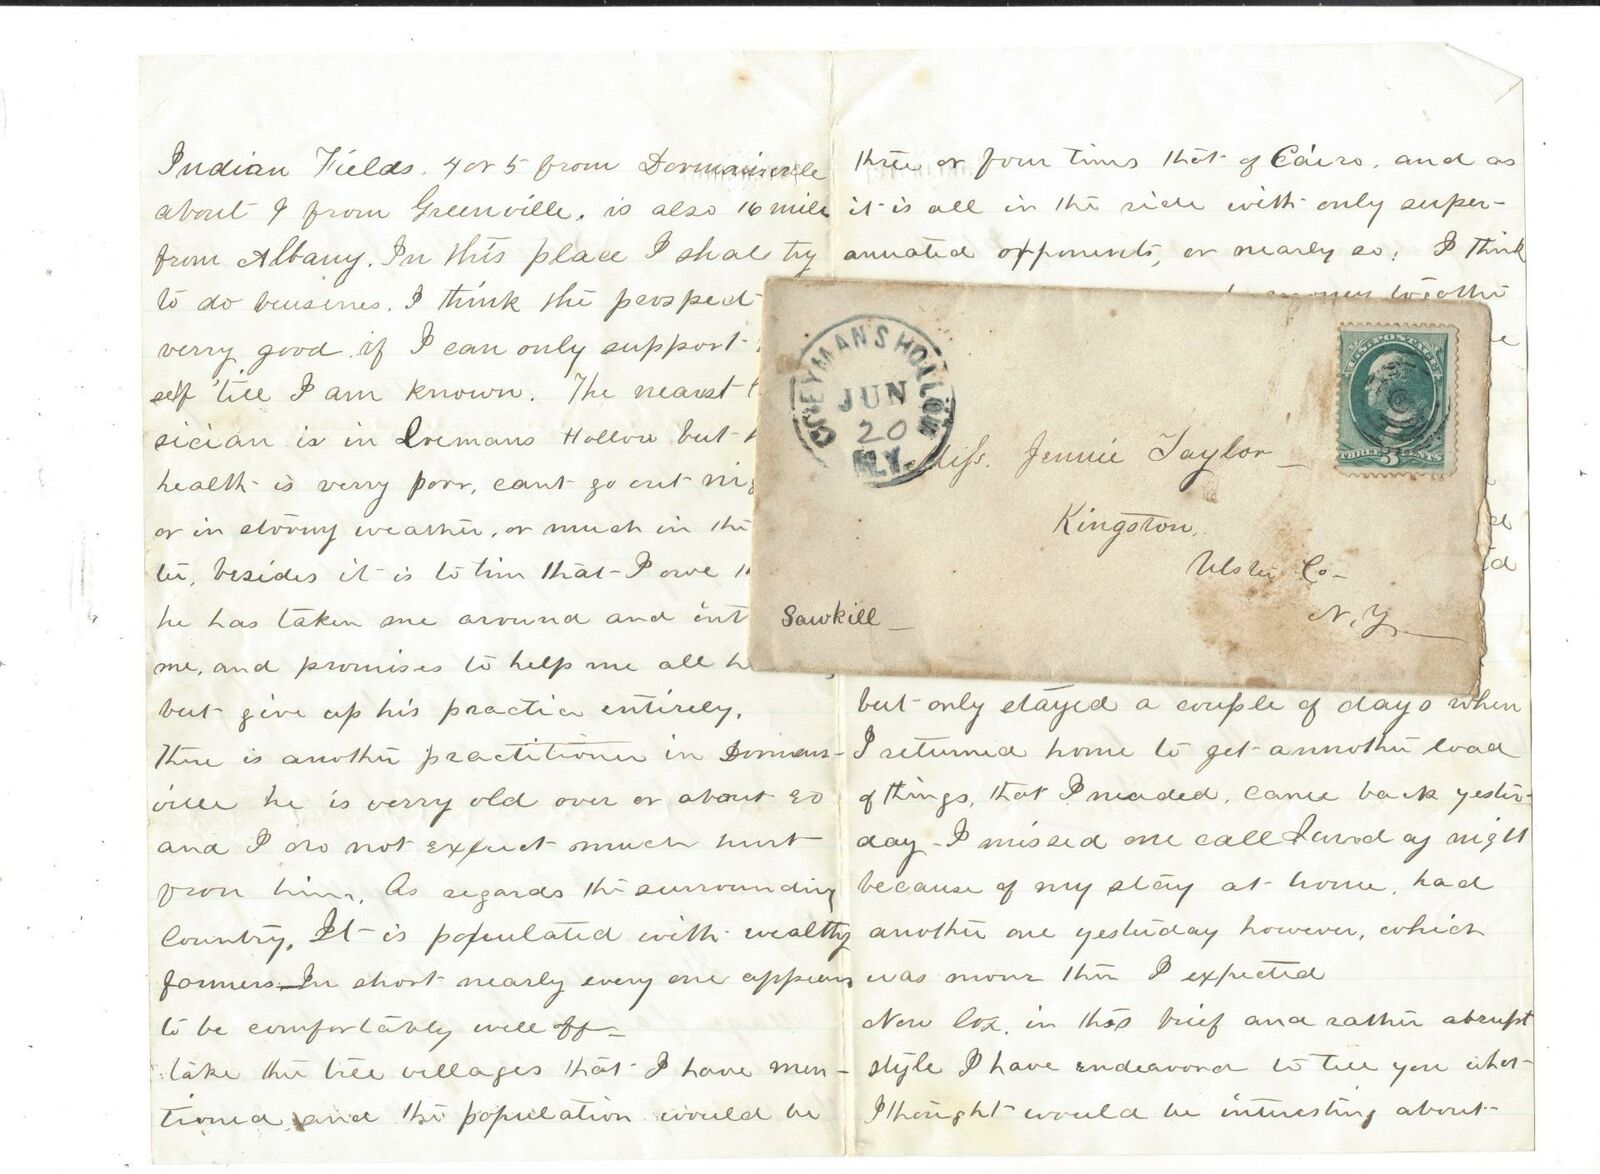 Indian Fields. 4 or 5 from Dormansville
about 9 from Greenville. is also 16 mile
from Albany. In this place I shal try
to do buusines. I think the prospect
verry good if I can only support
self 'till I am known. The nearest
sician is in Coemans Hollow but
health is verry poor, cant go out
or in stormy weather, or much in the
besides it is to him that I owe
he has taken me around and
me, and promises to help me all
but give up his practice entirely.
There is another practitioner in Dormans-
ville he is verry old over or about 80
and I do not expect much hurt
from him. As regards the surrounding
Country. It is populated with wealthy
farmers. In short nearly every one appears
to be comfortably well off-
take the tree villages that I have men-
tioned and the population would be
three or four times that of Cairo. and as
it is all in the ride with only super-
annuated opponents, or nearly so; I think
money togethe
but only stayed a couple of days when
I returned home to get annother load
of things, that I neaded. came back yester-
day - I missed one call
because of my stay at home. had
another one yesterday however, which
was mour then I expected
Now Coz. in this brief and rather abrupt
style I have endeavord to tell you what
I thought would be intersting about
COEYMANS HOLLOW
JUN
20
N.Y.
U.S. POSTAGE
THREE 3 CENTS
Miss. Jennie Taylor
Kingston,
Ulster Co-
N.Y.
Sawkill